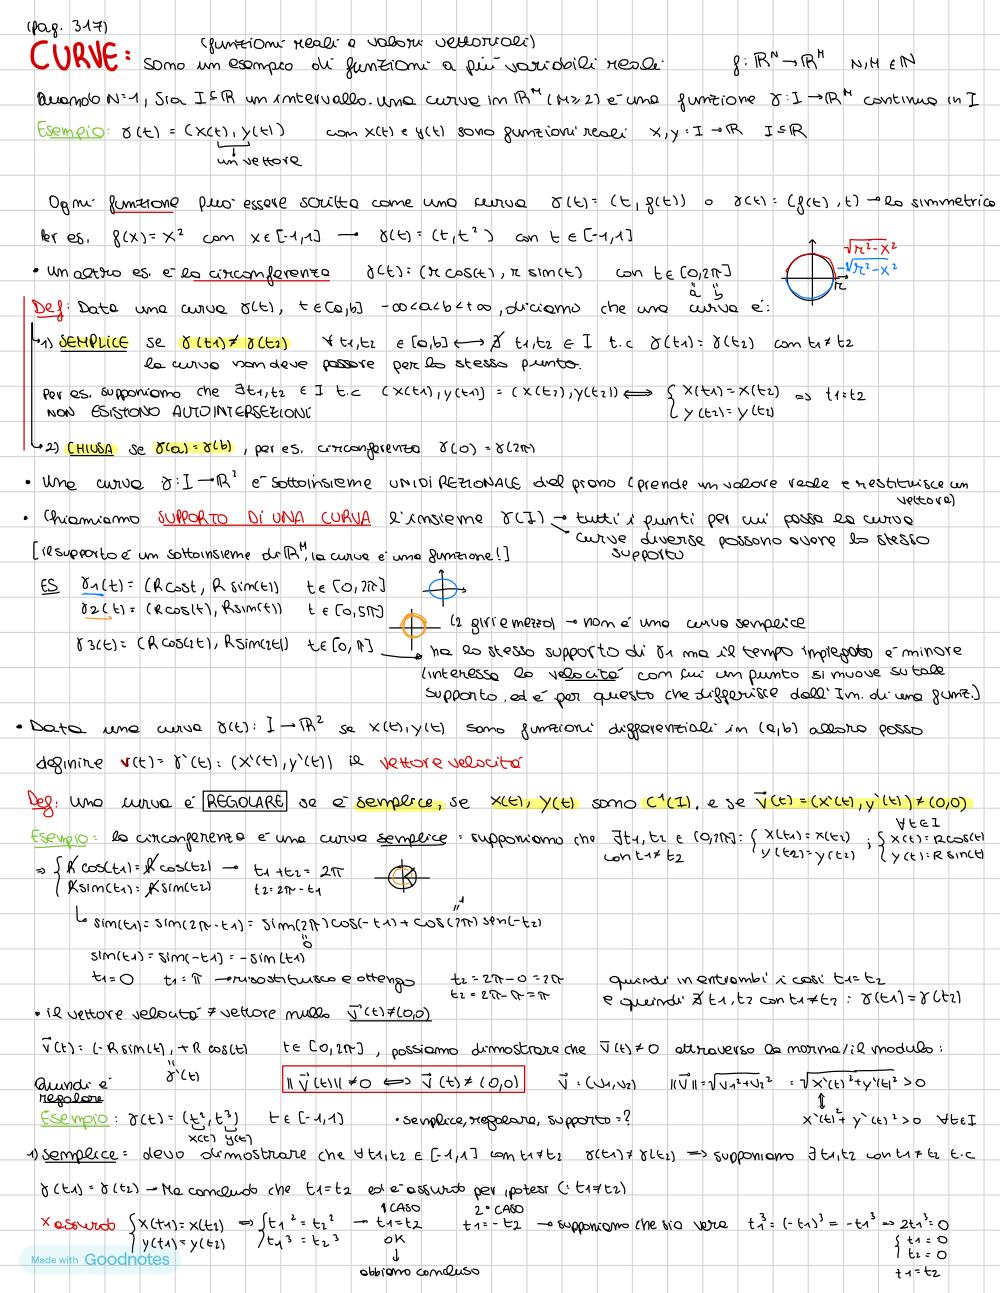 (pag. 317)
(funzioni reali a valori vettoriali)
CURVE: sono un esempio di funzioni a più variabili reali f: ℝᴺ → ℝᴹ N,M ∈ ℕ
Quando N=1, Sia I⊆ℝ un intervallo. una curva in ℝᴹ (M≥2) è una funzione γ: I → ℝᴹ continua in I
Esempio: γ(t) = (x(t), y(t)) con x(t) e y(t) sono funzioni reali x,y: I → ℝ I⊆ℝ
un vettore
Ogni funzione puo' essere scritta come una curva γ(t) = (t, f(t)) o γ(t) = (f(t), t) → la simmetrica
Per es. f(x) = x² con x∈[-1,1] → γ(t) = (t,t²) con t∈[-1,1]
√r²-x²
-√r²-x²
r
• un altro es. è la circonferenza γ(t): (r cos(t), r sin(t)) con t∈[0,2π]
a b
Def: Data una curva γ(t), t∈[a,b] -∞<a<b<+∞, diciamo che una curva è:
1) SEMPLICE se γ(t1) ≠ γ(t2) ∀t1,t2 ∈[a,b] ⟷ ∄ t1,t2 ∈ I t.c γ(t1) = γ(t2) con t1≠t2
la curva non deve passare per lo stesso punto.
Per es. supponiamo che ∃t1,t2 ∈ I t.c (x(t1), y(t1)) = (x(t2), y(t2)) ⟺ { x(t1) = x(t2) ⇒ t1=t2
NON ESISTONO AUTOINTERSEZIONI y(t2) = y(t2)
2) CHIUSA se γ(a) = γ(b), per es. circonferenza γ(0) = γ(2π)
• Una curva γ: I → ℝ² è sottoinsieme UNIDIREZIONALE del piano (prende un valore reale e restituisce un
vettore)
• Chiamiamo SUPPORTO DI UNA CURVA l'insieme γ(I) → tutti i punti per cui passa la curva
curve diverse possono avere lo stesso
[il supporto è un sottoinsieme di ℝᴹ, la curva è una funzione!] supporto
ES γ1(t) = (R cost, R sin(t)) t∈[0,2π]
γ2(t) = (R cos(t), R sin(t)) t∈[0,5π]
(2 giri e mezzo) → non è una curva semplice
γ3(t) = (R cos(2t), R sin(2t)) t∈[0,π]
ha lo stesso supporto di γ1 ma il tempo impiegato è minore
(interessa la velocità con cui un punto si muove su tale
supporto, ed è per questo che differisce dall'Im. di una funz.)
• Data una curva γ(t): I → ℝ² se x(t), y(t) sono funzioni differenziali in (a,b) allora posso
definire v(t) = γ'(t): (x'(t), y'(t)) il vettore velocità
Def: una curva è REGOLARE se è semplice, se x(t), y(t) sono C¹(I), e se v⃗(t) = (x'(t), y'(t)) ≠ (0,0)
∀t∈I
Esempio: la circonferenza è una curva semplice: supponiamo che ∃t1,t2 ∈ (0,2π]: { x(t1) = x(t2) ; { x(t) = R cos(t)
con t1≠t2 y(t2) = y(t2) y(t) = R sin(t)
⇒ { R cos(t1) = R cos(t2) → t1+t2 = 2π
R sin(t1) = R sin(t2) t2 = 2π-t1
1
sin(t1) = sin(2π-t1) = sin(2π) cos(-t1) + cos(2π) sen(-t2)
0
sin(t1) = sin(-t1) = -sin(t1)
t1=0 t1=π → risostituisco e ottengo t2 = 2π-0 = 2π quindi in entrambi i casi t1=t2
t2 = 2π-π = π e quindi ∄ t1,t2 con t1≠t2 : γ(t1) = γ(t2)
• il vettore velocità ≠ vettore nullo v⃗(t) ≠ (0,0)
v⃗(t) = (-R sin(t), +R cos(t) t∈[0,2π], possiamo dimostrare che v⃗(t) ≠ 0 attraverso la norma/il modulo:
γ'(t)
Quindi è ||v⃗(t)|| ≠ 0 ⟺ v⃗(t) ≠ (0,0) v⃗ = (v1,v2) ||v⃗|| = √v1²+v2² = √x'(t)²+y'(t)² > 0
regolare
Esempio: γ(t) = (t², t³) t∈[-1,1) • semplice, regolare, supporto = ? x'(t)² + y'(t)² > 0 ∀t∈I
x(t) y(t)
1) semplice = devo dimostrare che ∀t1,t2 ∈[-1,1] con t1≠t2 γ(t1) ≠ γ(t2) ⇒ supponiamo ∃t1,t2 con t1≠t2 t.c
γ(t1) = γ(t2) → Ma concludo che t1=t2 ed è assurdo per ipotesi (: t1≠t2)
1 CASO 2° CASO
x assurdo { x(t1) = x(t2) ⇒ { t1² = t2² → t1=t2 t1=-t2 → supponiamo che sia vera t1³ = (-t1)³ = -t1³ ⇒ 2t1³=0
y(t1) = y(t2) t1³ = t2³ OK { t1=0
t2=0
abbiamo concluso t1=t2
Made with Goodnotes